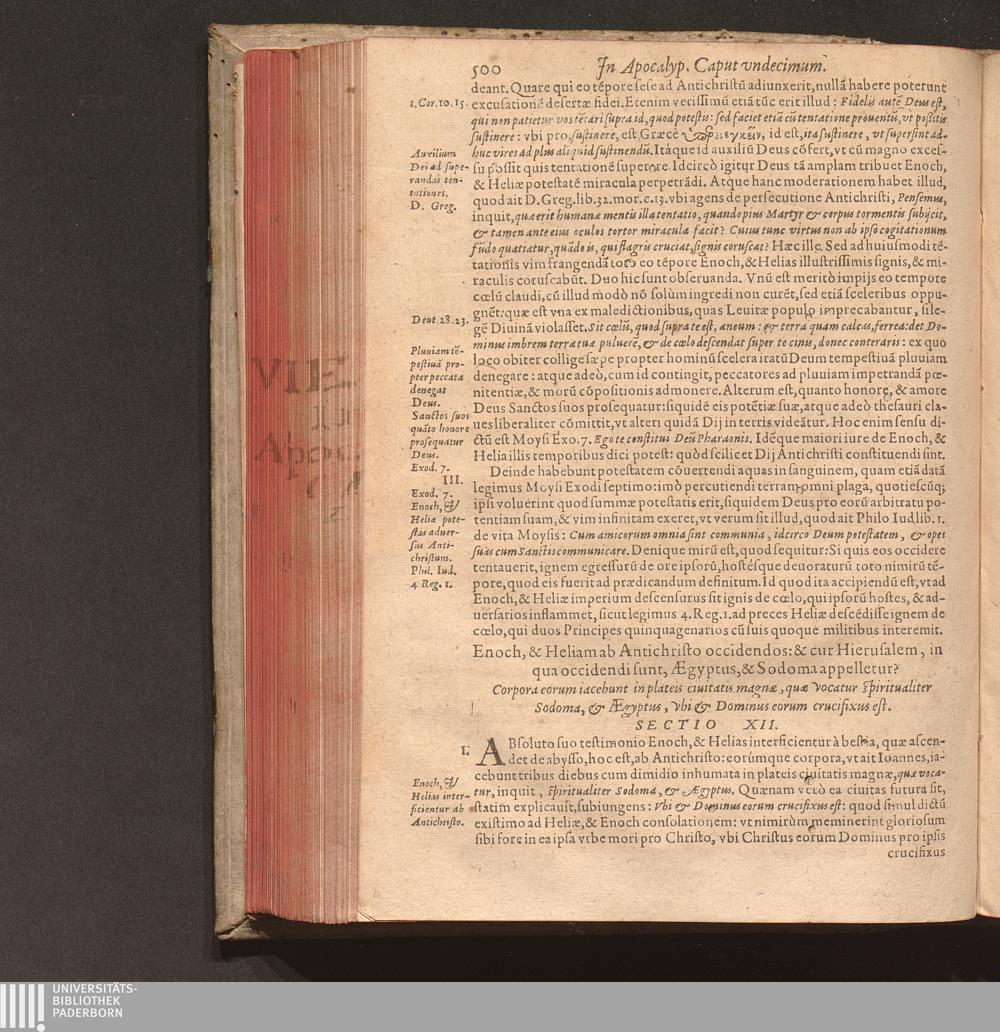 500 In Apocalyp. Caput vndecimum.
deant. Quare qui eo tẽpore sese ad Antichristũ adiunxerit, nullã habere poterunt
1. Cor. 10. 13.
excusationẽ desertæ fidei. Etenim verissimũ etiã tũc erit illud: Fidelis autẽ Deus est,
qui non patietur vos tẽtari supra id, quod potestis: sed faciet etiã cũ tentatione prouentũ, vt possitis
sustinere: vbi pro, sustinere, est Græcè ὑπενεγκεῖν, id est, ita sustinere, vt supersint ad-
huc vires ad plus aliquid sustinendũ. Itáque id auxiliũ Deus cõfert, vt cũ magno exces-
su possit quis tentationẽ superare. Idcircò igitur Deus tã amplam tribuet Enoch,
& Heliæ potestatẽ miracula perpetrãdi. Atque hanc moderationem habet illud,
Auxilium
Dei ad supe-
randas ten-
tationes.
D. Greg.
quod ait D. Greg. lib. 32. mor. c. 13. vbi agens de persecutione Antichristi, Pensemus,
inquit, quæ erit humanæ mentis illa tentatio, quando pius Martyr & corpus tormentis subijcit,
& tamen ante eius oculos tortor miracula facit? Cuius tunc virtus non ab ipso cogitationum
fũdo quatiatur, quãdo is, qui flagris cruciat, signis coruscat? Hæc ille. Sed ad huiusmodi tẽ-
tationis vim frangendã toto eo tẽpore Enoch, & Helias illustrissimis signis, & mi-
raculis coruscabũt. Duo hic sunt obseruanda. Vnũ est meritò impijs eo tempore
cœlũ claudi, cũ illud modò nõ solùm ingredi non curẽt, sed etiã sceleribus oppu-
gnẽt: quæ est vna ex maledictionibus, quas Leuitæ populo imprecabantur, si le-
Deut. 28. 23.
gẽ Diuinã violasset. Sit cœlũ, quod supra te est, æneum: & terra quam calcas, ferrea: det Do-
minus imbrem terræ tuæ puluerẽ, & de cœlo descendat super te cinis, donec conteraris: ex quo
loco obiter collige sæpe propter hominũ scelera iratũ Deum tempestiuã pluuiam
denegare: atque adeò, cum id contingit, peccatores ad pluuiam impetrandã pœ-
nitentiæ, & morũ cõpositionis admonere. Alterum est, quanto honore, & amore
Deus Sanctos suos prosequatur: siquidẽ eis potẽtiæ suæ, atque adeò thesauri cla-
ues liberaliter cõmittit, vt alteri quidã Dij in terris videãtur. Hoc enim sensu di-
ctũ est Moysi Exo. 7. Ego te constitui Deũ Pharaonis. Idẽque maiori iure de Enoch, &
Helia illis temporibus dici potest: quòd scilicet Dij Antichristi constituendi sint.
Pluuiam tẽ-
pestiuã pro-
pter peccata
denegat
Deus.
Sanctos suos
quãto honore
prosequatur
Deus.
Exod. 7.
III.
Deinde habebunt potestatem cõuertendi aquas in sanguinem, quam etiã datã
legimus Moysi Exodi septimo: imò percutiendi terram omni plaga, quotiescũq;
ipsi voluerint quod summæ potestatis erit, siquidem Deus pro eorũ arbitratu po-
tentiam suam, & vim infinitam exeret, vt verum sit illud, quod ait Philo Iud. lib. 1.
de vita Moysis: Cum amicorum omnia sint communia, idcirco Deum potestatem, & opes
suas cum Sanctis communicare. Denique mirũ est, quod sequitur: Si quis eos occidere
tentauerit, ignem egressurũ de ore ipsorũ, hostésque deuoraturũ toto nimirũ tẽ-
pore, quod eis fuerit ad prædicandum definitum. Id quod ita accipiendũ est, vt ad
Enoch, & Heliæ imperium descensurus sit ignis de cœlo, qui ipsorũ hostes, & ad-
uersarios inflammet, sicut legimus 4. Reg. 1. ad preces Heliæ descẽdisse ignem de
cœlo, qui duos Principes quinquagenarios cũ suis quoque militibus interemit.
Exod. 7.
Enoch, &
Heliæ pote-
stas aduer-
sus Anti-
christum.
Phil. Iud.
4 Reg. 1.
Enoch, & Heliam ab Antichristo occidendos: & cur Hierusalem, in
qua occidendi sunt, Ægyptus, & Sodoma appelletur?
Corpora eorum iacebunt in plateis ciuitatis magnæ, quæ vocatur spiritualiter
Sodoma, & Ægyptus, vbi & Dominus eorum crucifixus est.
SECTIO XII.
I.
ABsoluto suo testimonio Enoch, & Helias interficientur à bestia, quæ ascen-
det de abysso, hoc est, ab Antichristo: eorúmque corpora, vt ait Ioannes, ia-
cebunt tribus diebus cum dimidio inhumata in plateis ciuitatis magnæ, quæ voca-
tur, inquit, spiritualiter Sodoma, & Ægyptus. Quænam verò ea ciuitas futura sit,
statim explicauit, subiungens: Vbi & Dominus eorum crucifixus est: quod simul dictũ
existimo ad Heliæ, & Enoch consolationem: vt nimirùm meminerint gloriosum
sibi fore in ea ipsa vrbe mori pro Christo, vbi Christus eorum Dominus pro ipsis
Enoch, &
Helias inter-
ficientur ab
Antichristo.
crucifixus
UNIVERSITÄTS-
BIBLIOTHEK
PADERBORN